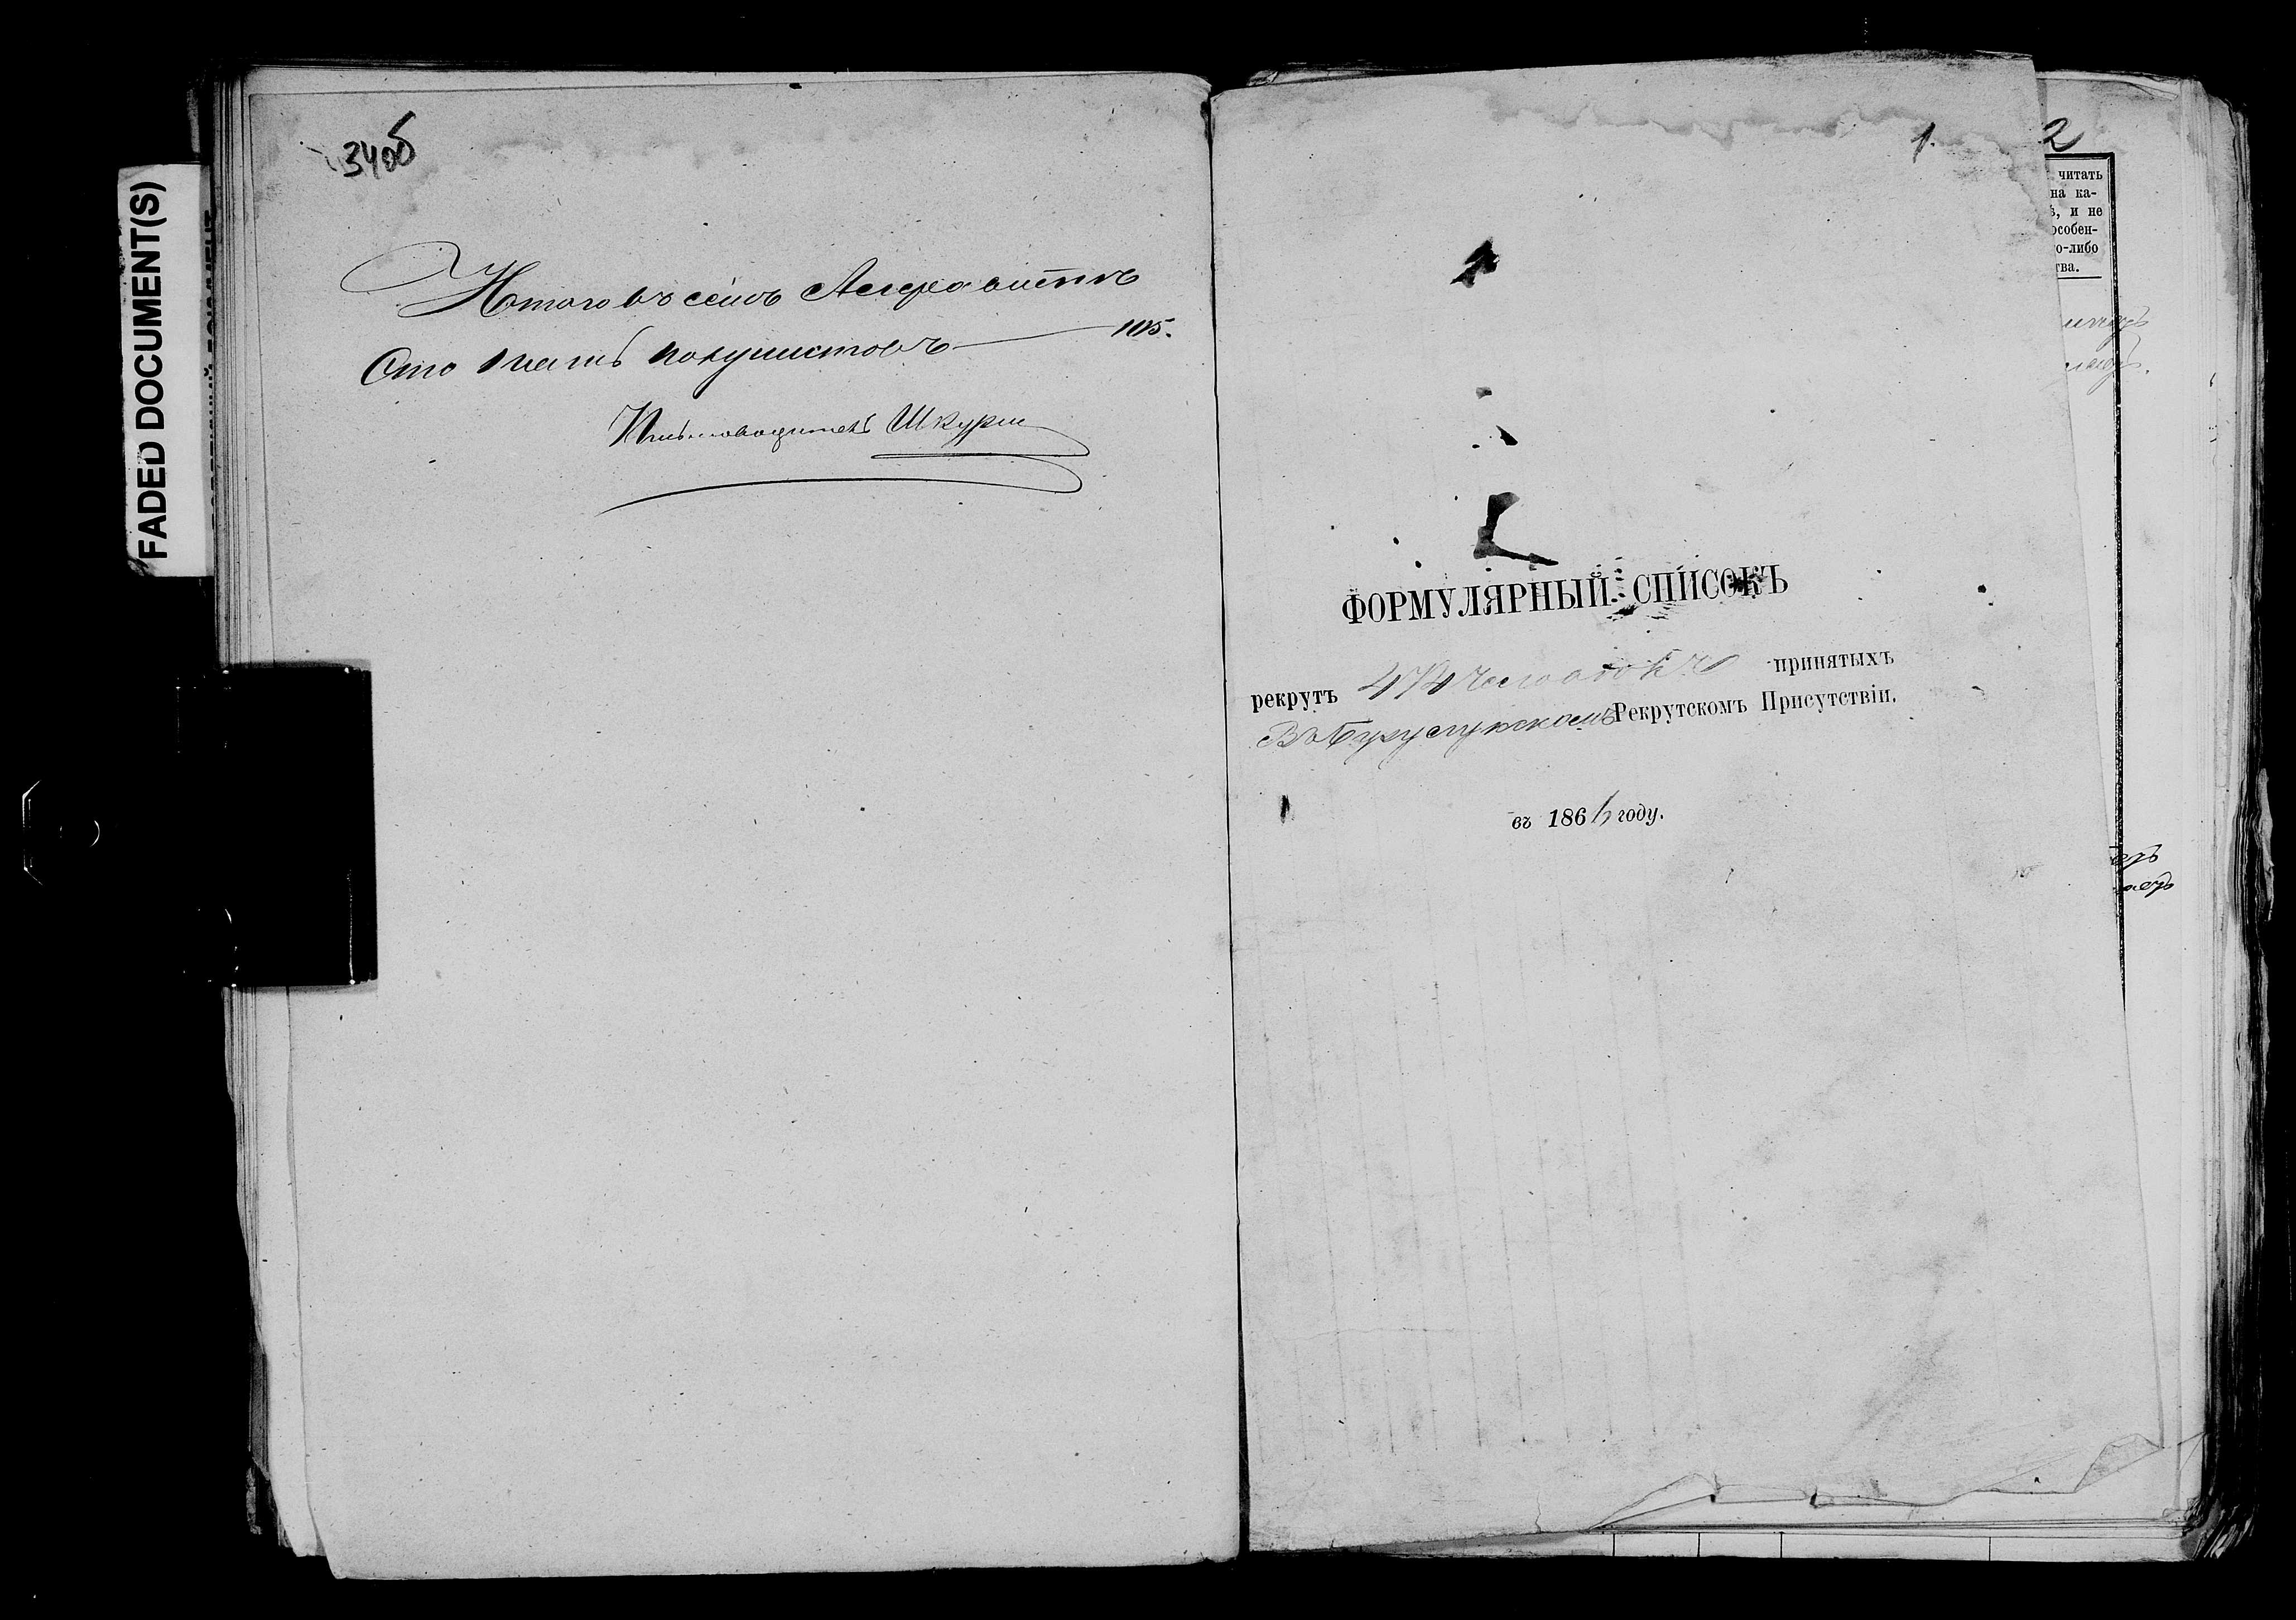 FADED DOCUMENT(S)
34об
Итого въ семъ Алфавитѣ
Сто пять полулистовъ — 105.
Письмоводитель Шкурин
1.
ФОРМУЛЯРНЫЙ СПИСОКЪ
рекрутъ 474 человѣкъ принятыхъ
Въ Бугурусланскомъ Рекрутскомъ Присутствіи.
въ 186 году.
2
читать
на ка-
ѣ, и не
особен-
го-либо
тва.